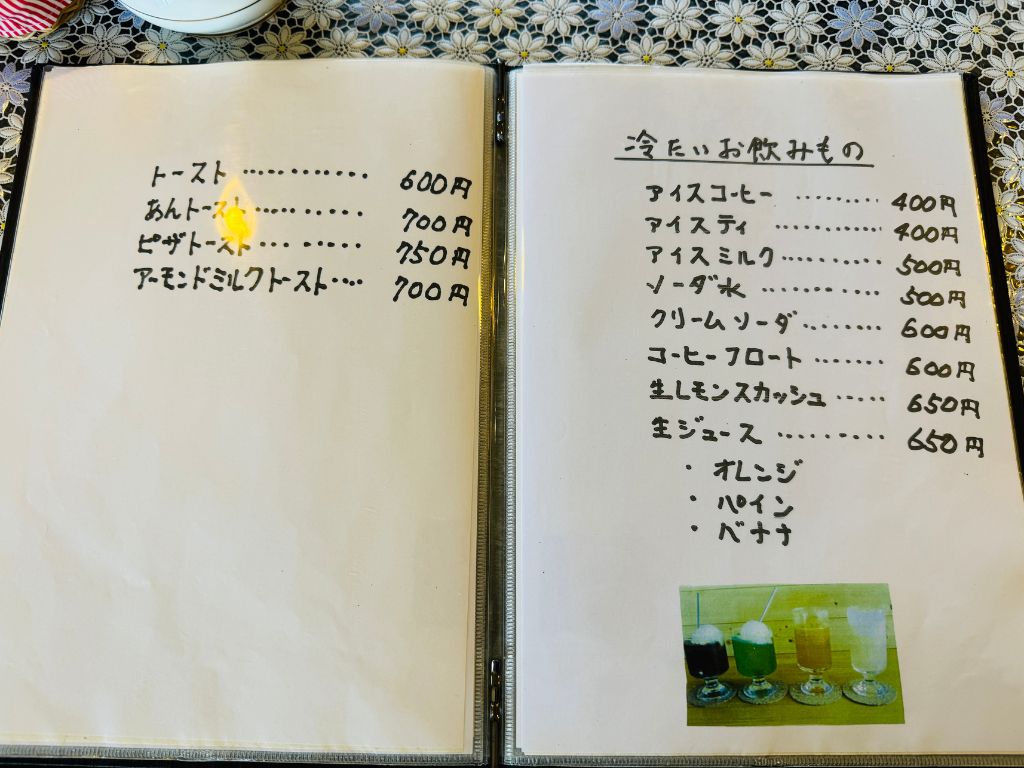 トースト ………… 600円
あんトースト ……… 700円
ピザトースト ……… 750円
アーモンドミルクトースト …. 700円
冷たいお飲みもの
アイスコーヒー ……… 400円
アイスティ ………… 400円
アイスミルク ………… 500円
ソーダ水 ………… 500円
クリームソーダ ……… 600円
コーヒーフロート ……. 600円
生レモンスカッシュ ….. 650円
生ジュース ………… 650円
・ オレンジ
・ パイン
・ バナナ